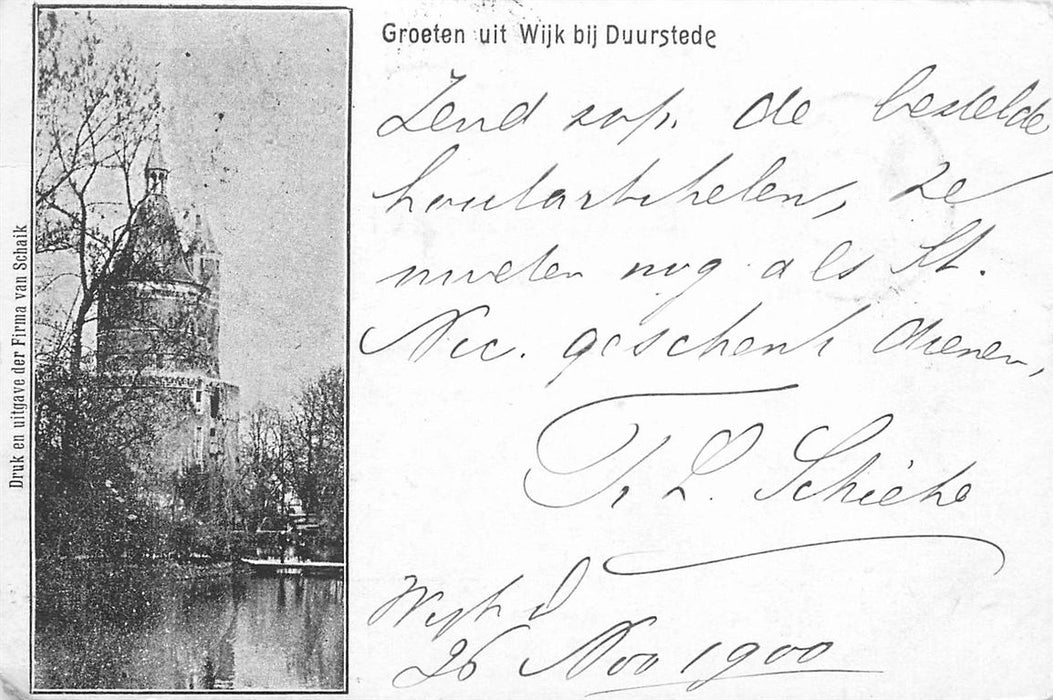 Groeten uit Wijk bij Duurstede
Zend sop. de bestelde
houtartikelen, ze
moeten nog als St.
Nic. geschenk dienen,
L. Schieke
Wijk D
26 Nov 1900
Druk en uitgave der Firma van Schaik